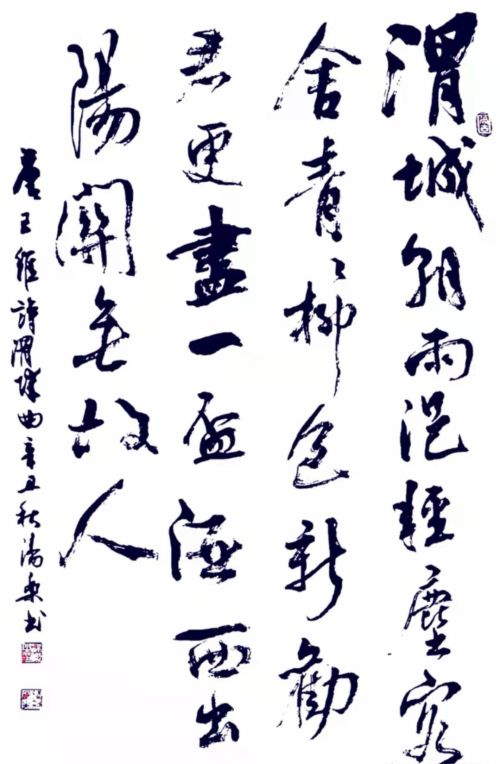 渭城朝雨浥輕塵客
舍青〻柳色新勸
君更盡一盃酒西出
陽關無故人
唐王維詩渭城曲辛丑秋書